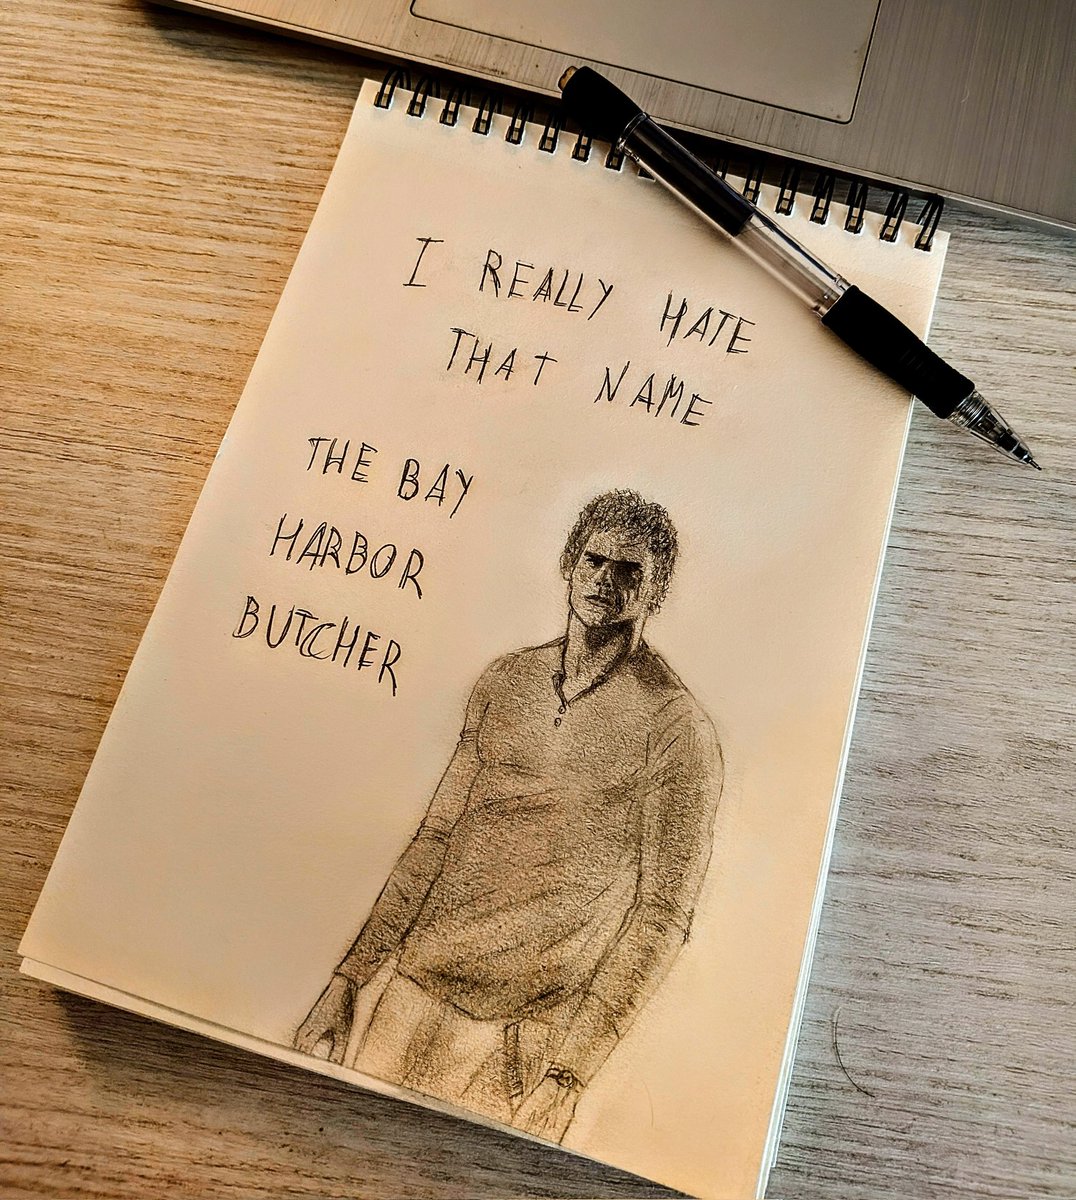 I REALLY HATE
THAT NAME
THE BAY
HARBOR
BUTCHER